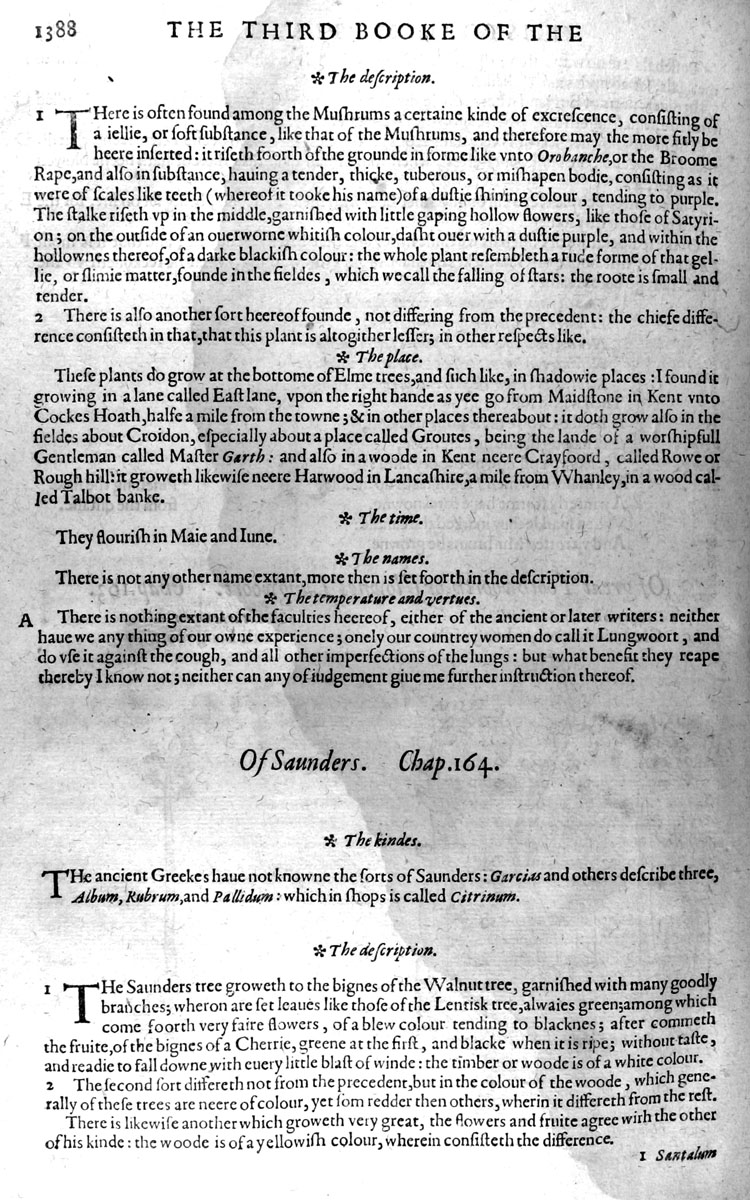 1388 THE THIRD BOOKE OF THE
❧ The deſcription.
1 THere is often found among the Muſhrums a certaine kinde of excreſcence, conſiſting of
a iellie, or ſoft ſubſtance, like that of the Muſhrums, and therefore may the more fitly be
heere inſerted: it riſeth foorth of the grounde in forme like vnto Orobanche, or the Broome
Rape, and alſo in ſubſtance, hauing a tender, thicke, tuberous, or miſhapen bodie, conſiſting as it
were of ſcales like teeth (whereof it tooke his name) of a duſtie ſhining colour, tending to purple.
The ſtalke riſeth vp in the middle, garniſhed with little gaping hollow flowers, like thoſe of Satyri-
on; on the outſide of an ouerworne whitiſh colour, daſht ouer with a duſtie purple, and within the
hollownes thereof, of a darke blackiſh colour: the whole plant reſembleth a rude forme of that gel-
lie, or ſlimie matter, founde in the fieldes, which we call the falling of ſtars: the roote is ſmall and
tender.
2 There is alſo another ſort heereof founde, not differing from the precedent: the chiefe diffe-
rence conſiſteth in that, that this plant is altogither leſſer; in other reſpects like.
❧ The place.
Theſe plants do grow at the bottome of Elme trees, and ſuch like, in ſhadowie places: I found it
growing in a lane called Eaſt lane, vpon the right hande as yee go from Maidſtone in Kent vnto
Cockes Hoath, halfe a mile from the towne; & in other places thereabout: it doth grow alſo in the
fieldes about Croidon, eſpecially about a place called Groutes, being the lande of a worſhipfull
Gentleman called Maſter Garth: and alſo in a woode in Kent neere Crayfoord, called Rowe or
Rough hill: it groweth likewiſe neere Harwood in Lancaſhire, a mile from Whanley, in a wood cal-
led Talbot banke.
❧ The time.
They flouriſh in Maie and Iune.
❧ The names.
There is not any other name extant, more then is ſet foorth in the deſcription.
❧ The temperature and vertues.
A There is nothing extant of the faculties heereof, either of the ancient or later writers: neither
haue we any thing of our owne experience; onely our countrey women do call it Lungwoort, and
do vſe it againſt the cough, and all other imperfections of the lungs: but what benefit they reape
thereby I know not; neither can any of iudgement giue me further inſtruction thereof.
Of Saunders. Chap. 164.
❧ The kindes.
THe ancient Greekes haue not knowne the ſorts of Saunders: Garcias and others deſcribe three,
Album, Rubrum, and Pallidum: which in ſhops is called Citrinum.
❧ The deſcription.
1 THe Saunders tree groweth to the bignes of the Walnut tree, garniſhed with many goodly
branches; wheron are ſet leaues like thoſe of the Lentisk tree, alwaies green; among which
come foorth very faire flowers, of a blew colour tending to blacknes; after commeth
the fruite, of the bignes of a Cherrie, greene at the firſt, and blacke when it is ripe; without taſte,
and readie to fall downe with euery little blaſt of winde: the timber or woode is of a white colour.
2 The ſecond ſort differeth not from the precedent, but in the colour of the woode, which gene-
rally of theſe trees are neere of colour, yet ſom redder then others, wherin it differeth from the reſt.
There is likewiſe another which groweth very great, the flowers and fruite agree with the other
of his kinde: the woode is of a yellowiſh colour, wherein conſiſteth the difference.
1 Santalum